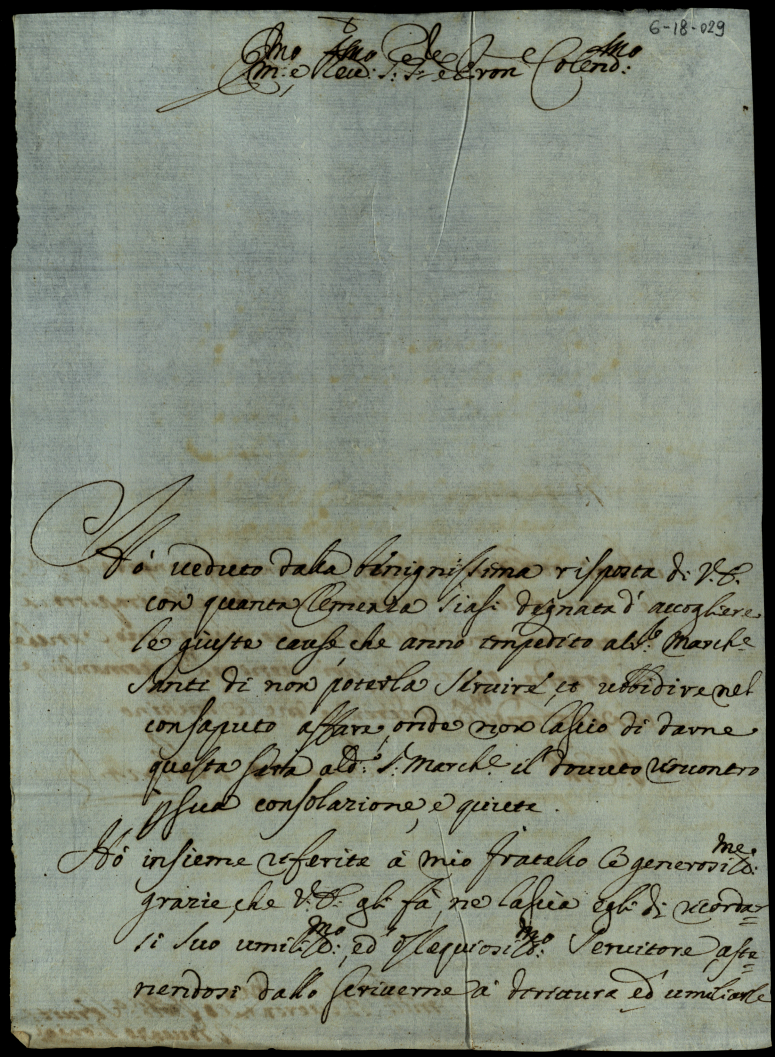 6-18-029
Em:mo e Reu:mo S: S:r e Pron Colend:mo
Hò ueduto dalla benignissima risposta di V.E.
con quanta Clemenza siasi degnata d'accogliere
le giuste cause, che anno impedito al S:r March:e
Santi di non poterla seruire, et ubbidire nel
consaputo affare, onde non lascio di darne
questa sera al d:o S:r March:e il douuto riscontro
p sua consolazione, e quiete.
Hò insieme riferite à mio fratello le generosi:me
grazie, che V:E: gli fà, ne lascia egli di ricordar=
si suo umili:mo, ed ossequiosi:mo Seruitore, aste=
nendosi dallo scriuerne à drittura ed umiliarle